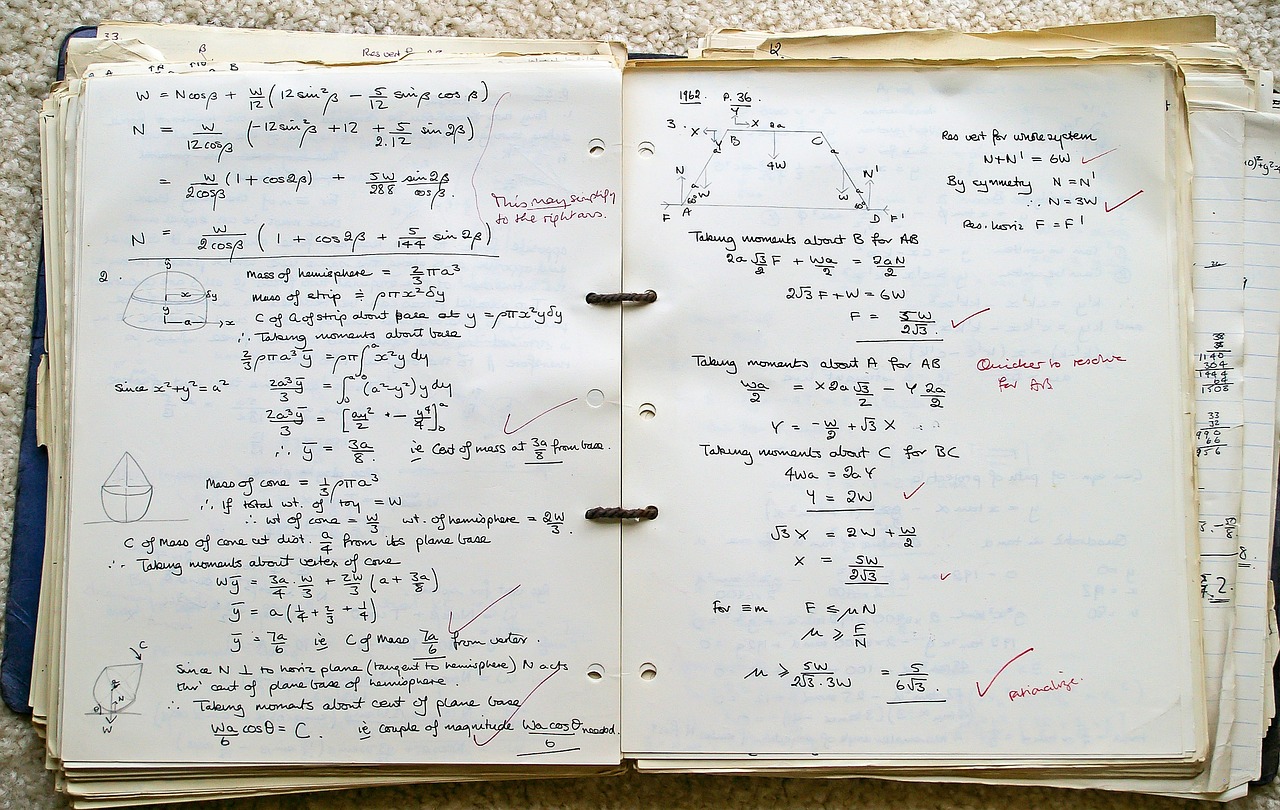 33.
β
Res vert
B
W = Ncosβ + W/12 (12sin²β − 5/12 sinβ cosβ)
N = W/12cosβ (−12sin²β + 12 + 5/2.12 sin2β)
= W/2cosβ (1 + cos2β) + 5W/288 sin2β/cosβ.
This may simplify
to the right ans.
N = W/2cosβ (1 + cos2β + 5/144 sin2β)
2.
y
x δy
y
a x
Mass of hemisphere = 2/3 πa³
Mass of strip ≑ ρπx²δy
C of G of strip about base at y = ρπx²yδy
∴ Taking moments about base
2/3 ρπa³ȳ = ρπ∫₀ᵃ x²y dy
Since x²+y²=a² 2a³ȳ/3 = ∫₀ᵃ (a²−y²)y dy
2a³ȳ/3 = [ay²/2 − y⁴/4]₀ᵃ
∴ ȳ = 3a/8 ie Cent of mass at 3a/8 from base.
Mass of cone = 1/3 ρπa³
∴ If total wt. of toy = W
∴ wt of cone = W/3 wt. of hemisphere = 2W/3.
C of Mass of cone at dist. a/4 from its plane base
∴ Taking moments about vertex of cone
Wȳ = 3a/4 · W/3 + 2W/3 (a + 3a/8)
ȳ = a(1/4 + 2/3 + 1/4)
ȳ = 7a/6 ie C of Mass 7a/6 from vertex.
C
N
θ
W
Since N ⊥ to horiz plane (tangent to hemisphere) N acts
thro' cent of plane base of hemisphere.
∴ Taking moments about cent of plane base
Wa/6 cosθ = C. ie couple of magnitude Wa cosθ/6 needed.
12.
1962. P. 36.
Y
3. X X 2a
Y B C
a 4W a
N N'
a W W a
60° 60°
F A D F'
Res vert for whole system
N+N' = 6W
By symmetry N = N'
∴ N = 3W
Res. horiz F = F'
Taking moments about B for AB
2a √3/2 F + Wa/2 = 2aN/2
2√3 F + W = 6W
F = 5W/2√3.
Taking moments about A for AB
Quicker to resolve
for AB
Wa/2 = X 2a √3/2 − Y 2a/2
Y = −W/2 + √3 X
Taking moments about C for BC
4Wa = 2aY
Y = 2W
√3 X = 2W + W/2
X = 5W/2√3
For ≡m F ≤ μN
μ ≥ F/N
μ ≥ 5W/2√3.3W = 5/6√3.
rationalize.
38
38
1140
304
1444
64
1508
33
32
990
66
956
2.